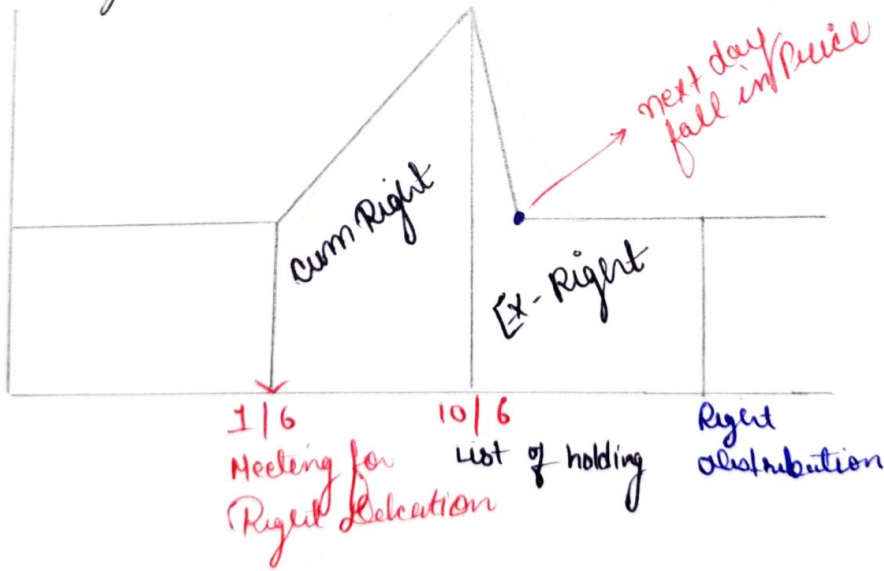 next day
fall in Price
cum Right
Ex-Right
1/6
10/6
Meeting for
Right
List of holding
Right
distribution